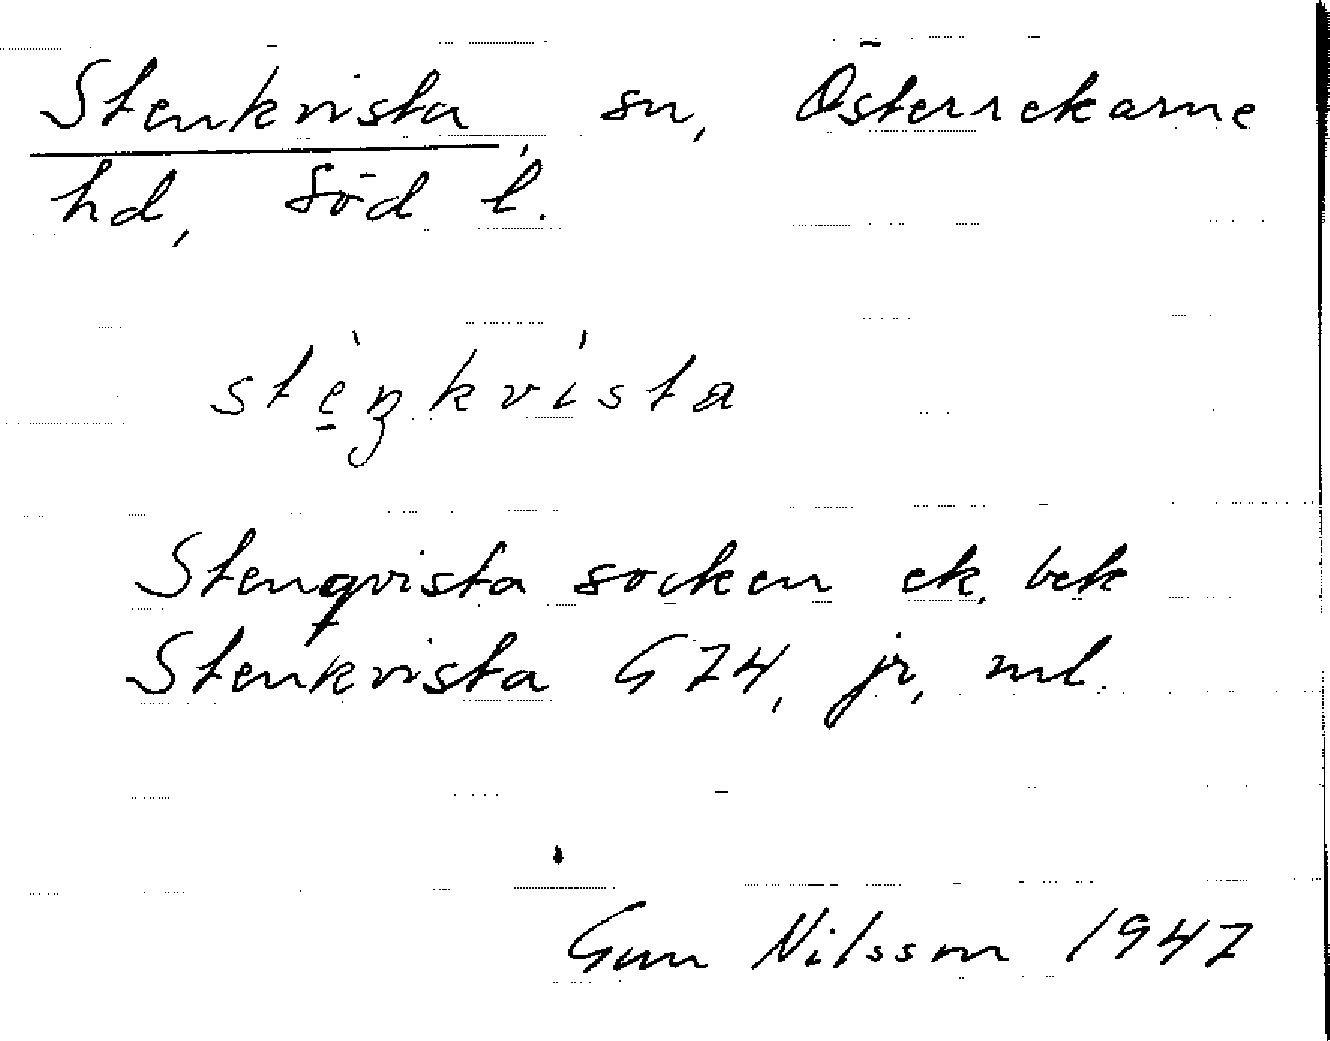 Stenkvista, sn, Österrekarne
hd, Söd l.
stèŋkvísta
Stenqvista socken ek. bek
Stenkvista G74, jr, ml.
Gun Nilsson 1947